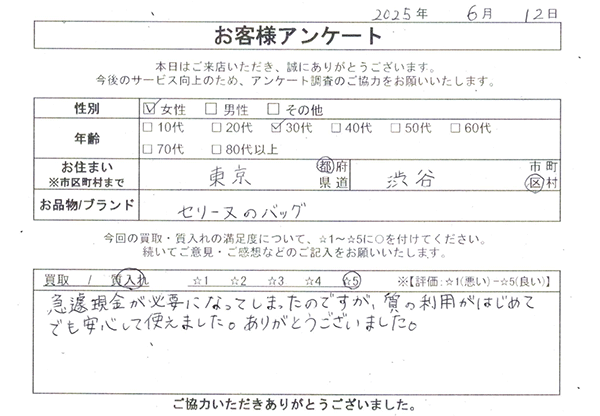 2025年 6月 12日
お客様アンケート
本日はご来店いただき、誠にありがとうございます。
今後のサービス向上のため、アンケート調査のご協力をお願いいたします。
性別 ☑女性 □男性 □その他
年齢 □10代 □20代 ☑30代 □40代 □50代 □60代
□70代 □80代以上
お住まい ※市区町村まで 東京 都府県道 渋谷 市町区村
お品物/ブランド セリーヌのバッグ
今回の買取・質入れの満足度について、☆1～☆5に○を付けてください。
続いてご意見・ご感想などのご記入をお願いいたします。
買取 / 質入れ ☆1 ☆2 ☆3 ☆4 ☆5 ※【評価:☆1(悪い)－☆5(良い)】
急遽現金が必要になってしまったのですが、質の利用がはじめて
でも安心して使えました。ありがとうございました。
ご協力いただきありがとうございました。